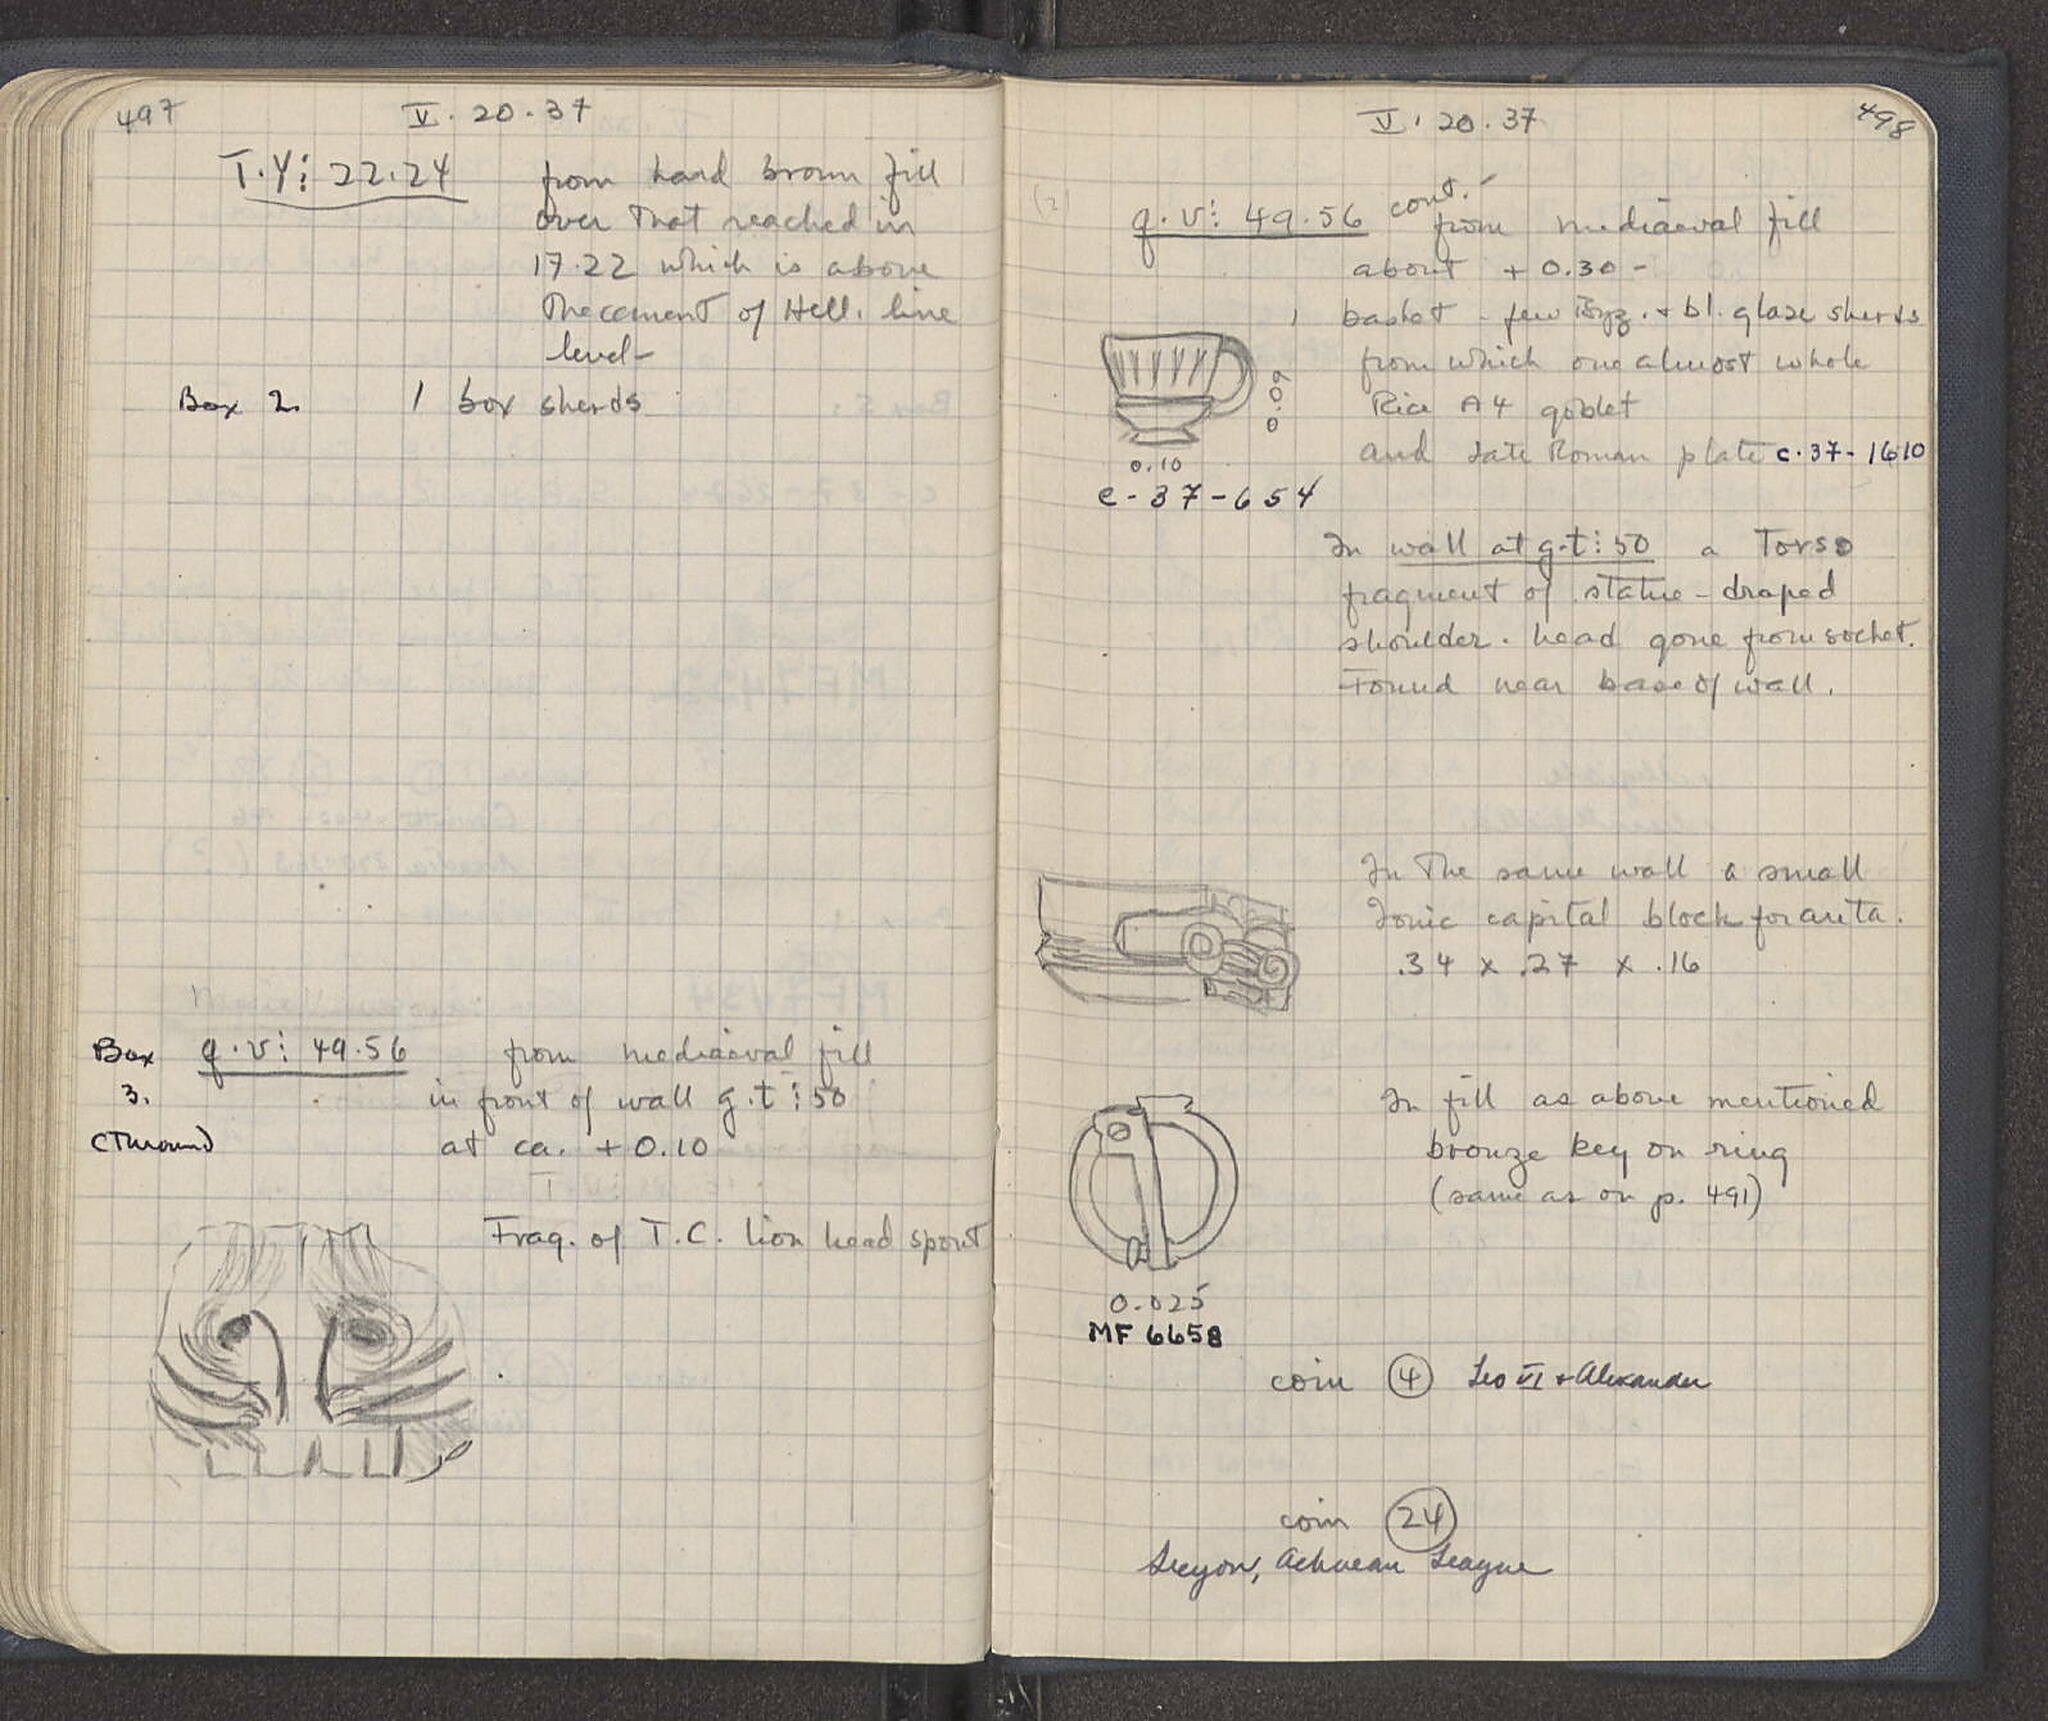 497
V. 20. 37
T.Y: 22.24 from hard brown fill
over that reached in
17.22 which is above
the cement of Hell. line
level-
Box 2. 1 box sherds
Box q.v: 49.56 from mediaeval fill
3. in front of wall g.t: 50
(Thrown) at ca. + 0.10
Frag. of T.C. lion head spout
V. 20. 37
498
(2)
q.v: 49.56 cont. from mediaeval fill
about + 0.30 -
1 basket - few Byz. + bl. glaze sherds
from which one almost whole
Rice A4 goblet
and Late Roman plate C.37-1610
0.09
0.10
C-37-654
In wall at g.t: 50 a Torso
fragment of statue - draped
shoulder. head gone from socket.
Found near base of wall.
In the same wall a small
Ionic capital block for anta.
.34 x .27 x .16
In fill as above mentioned
bronze key on ring
(same as on p. 491)
0.025
MF 6658
coin 4 Leo VI + Alexander
coin 24
Sicyon, Achaean League